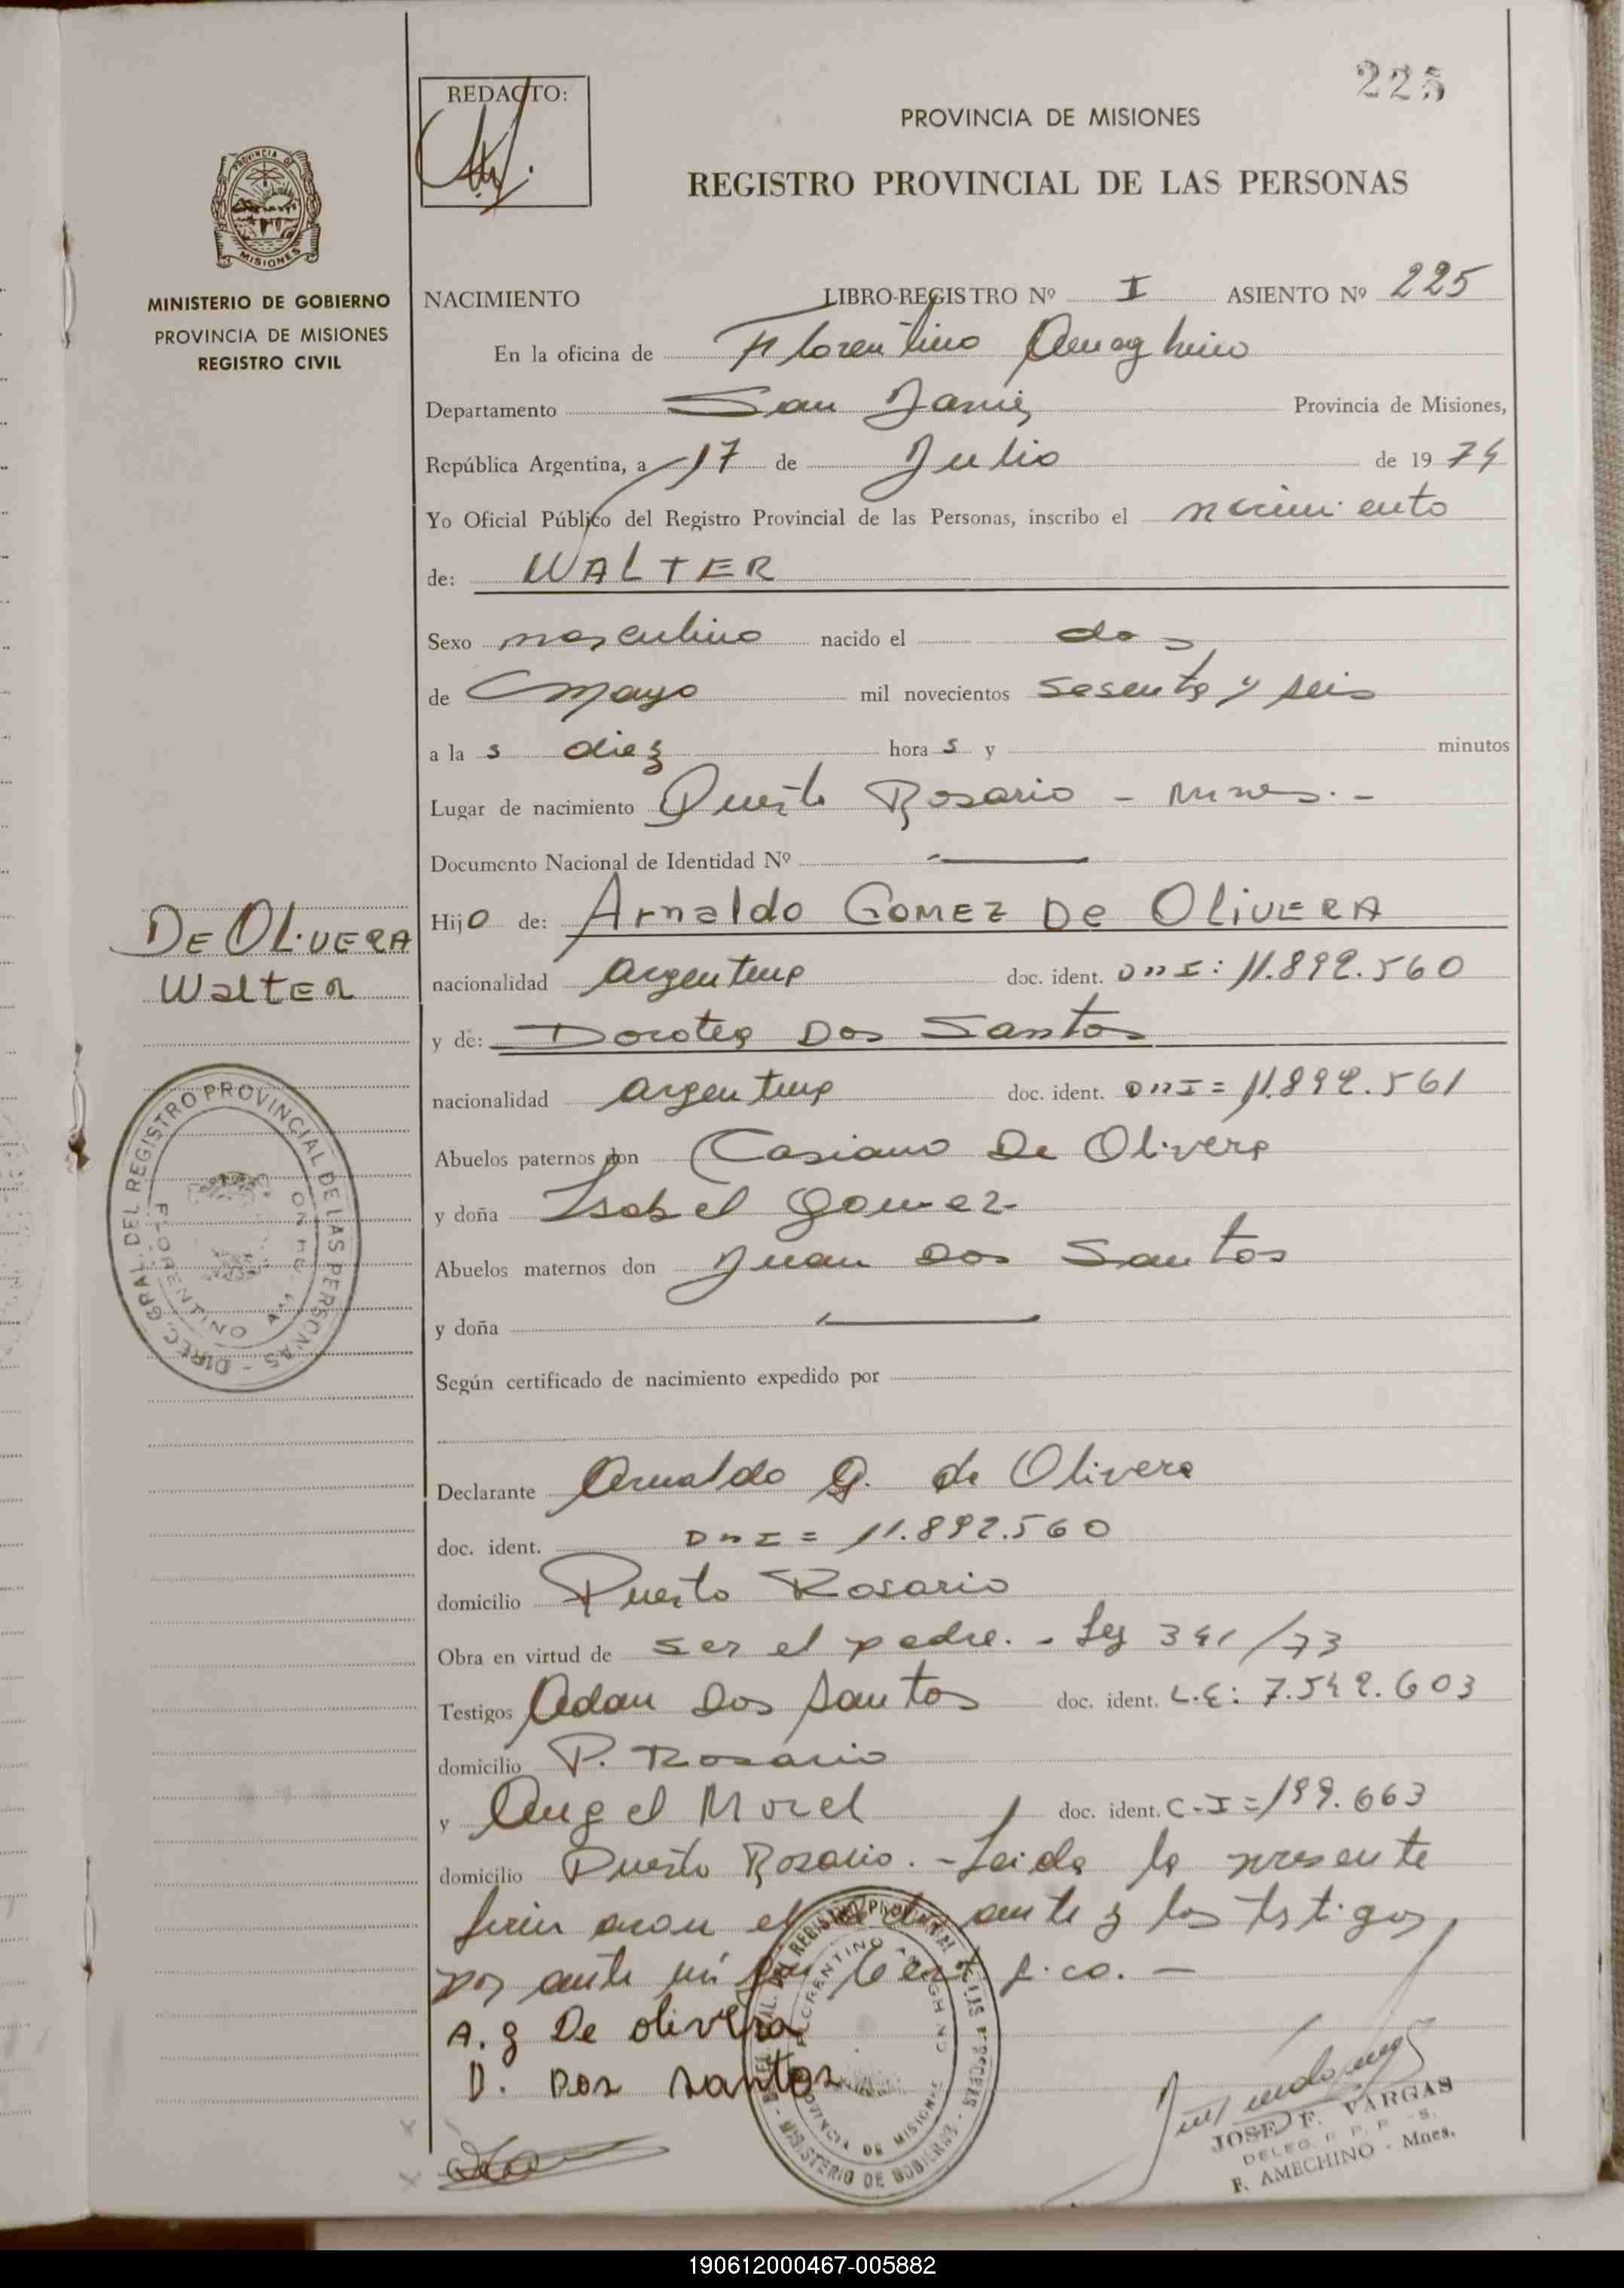 225
REDACTO:
PROVINCIA DE MISIONES
REGISTRO PROVINCIAL DE LAS PERSONAS
PROVINCIA DE
MISIONES
MINISTERIO DE GOBIERNO
PROVINCIA DE MISIONES
REGISTRO CIVIL
NACIMIENTO LIBRO-REGISTRO Nº I ASIENTO Nº 225
En la oficina de Florentino Ameghino
Departamento San Javier Provincia de Misiones,
República Argentina, a 17 de Julio de 1974
Yo Oficial Público del Registro Provincial de las Personas, inscribo el nacimiento
de: WALTER
Sexo masculino nacido el dos
de mayo mil novecientos sesenta y seis
a las diez horas y minutos
Lugar de nacimiento Puerto Rosario - Mnes. -
Documento Nacional de Identidad Nº
DE OLIVERA
Walter
Hijo de: Arnaldo GOMEZ De OLiVERA
nacionalidad argentina doc. ident. DNI: 11.892.560
y de: Dorotea Dos Santos
nacionalidad argentina doc. ident. DNI = 11.892.561
Abuelos paternos don Casiano De Olivera
y doña Isabel Gomez
Abuelos maternos don Juan Dos Santos
y doña
Según certificado de nacimiento expedido por
DIREC. GRAL. DEL REGISTRO PROVINCIAL DE LAS PERSONAS
FLORENTINO
Declarante Arnaldo G. de Olivera
doc. ident. DNI = 11.892.560
domicilio Puerto Rosario
Obra en virtud de ser el padre. - Ley 341/73
Testigos Adan Dos Santos doc. ident. L.E: 7.542.603
domicilio P. Rosario
y Angel Morel doc. ident. C.I = 199.663
domicilio Puerto Rosario. - Leida la presente
firmaron el ante y los testigos,
por ante mi que certifico. -
A. g De olivera
D. Dos santos
REGISTRO PROVINCIAL
FLORENTINO
PROVINCIA DE MISIONES
MINISTERIO DE GOBIERNO
JOSE F. VARGAS
DELEG. R. P. P. S.
F. AMECHINO - Mnes.
190612000467-005882